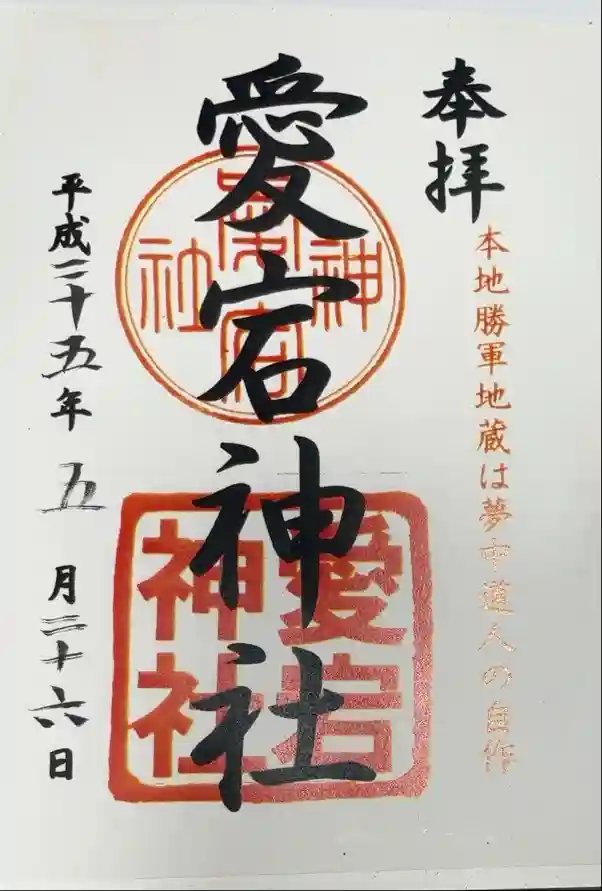 奉拝
本地勝軍地蔵は夢中道人の自作
愛宕神社
愛宕
神社
神
社
平成二十五年五月二十六日